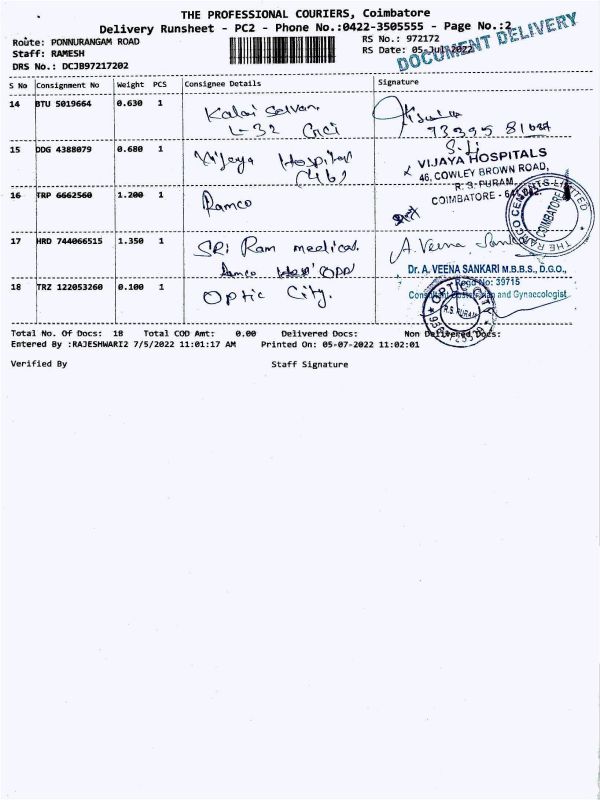 THE PROFESSIONAL COURIERS, Coimbatore
Delivery Runsheet - PC2 - Phone No.:0422-3505555 - Page No.:2
Route: PONNURANGAM ROAD
RS No.: 972172
Staff: RAMESH
RS Date: 05-Jul-2022
DRS No.: DCJB97217202
DOCUMENT DELIVERY
S No Consignment No Weight PCS Consignee Details Signature
14 BTU 5019664 0.630 1 Kalai Selvan.
L-32
15 DDG 4388079 0.680 1 Vijaya Hospital
(46)
VIJAYA HOSPITALS
46, COWLEY BROWN ROAD,
R. S. PURAM,
COIMBATORE -
16 TRP 6662560 1.200 1 Ramco
THE RAMCO CEMENTS LIMITED
COIMBATORE
17 HRD 744066515 1.350 1 SRi Ram medical.
A. Veena Sankari
Dr. A. VEENA SANKARI M.B.B.S., D.G.O.,
Regd No: 39715
Consultant Obstetrician and Gynaecologist
18 TRZ 122053260 0.100 1 Optic City.
OPTIC CITY
R.S. PURAM
Total No. Of Docs: 18 Total COD Amt: 0.00 Delivered Docs: Non Delivered Docs:
Entered By :RAJESHWARI2 7/5/2022 11:01:17 AM Printed On: 05-07-2022 11:02:01
Verified By Staff Signature